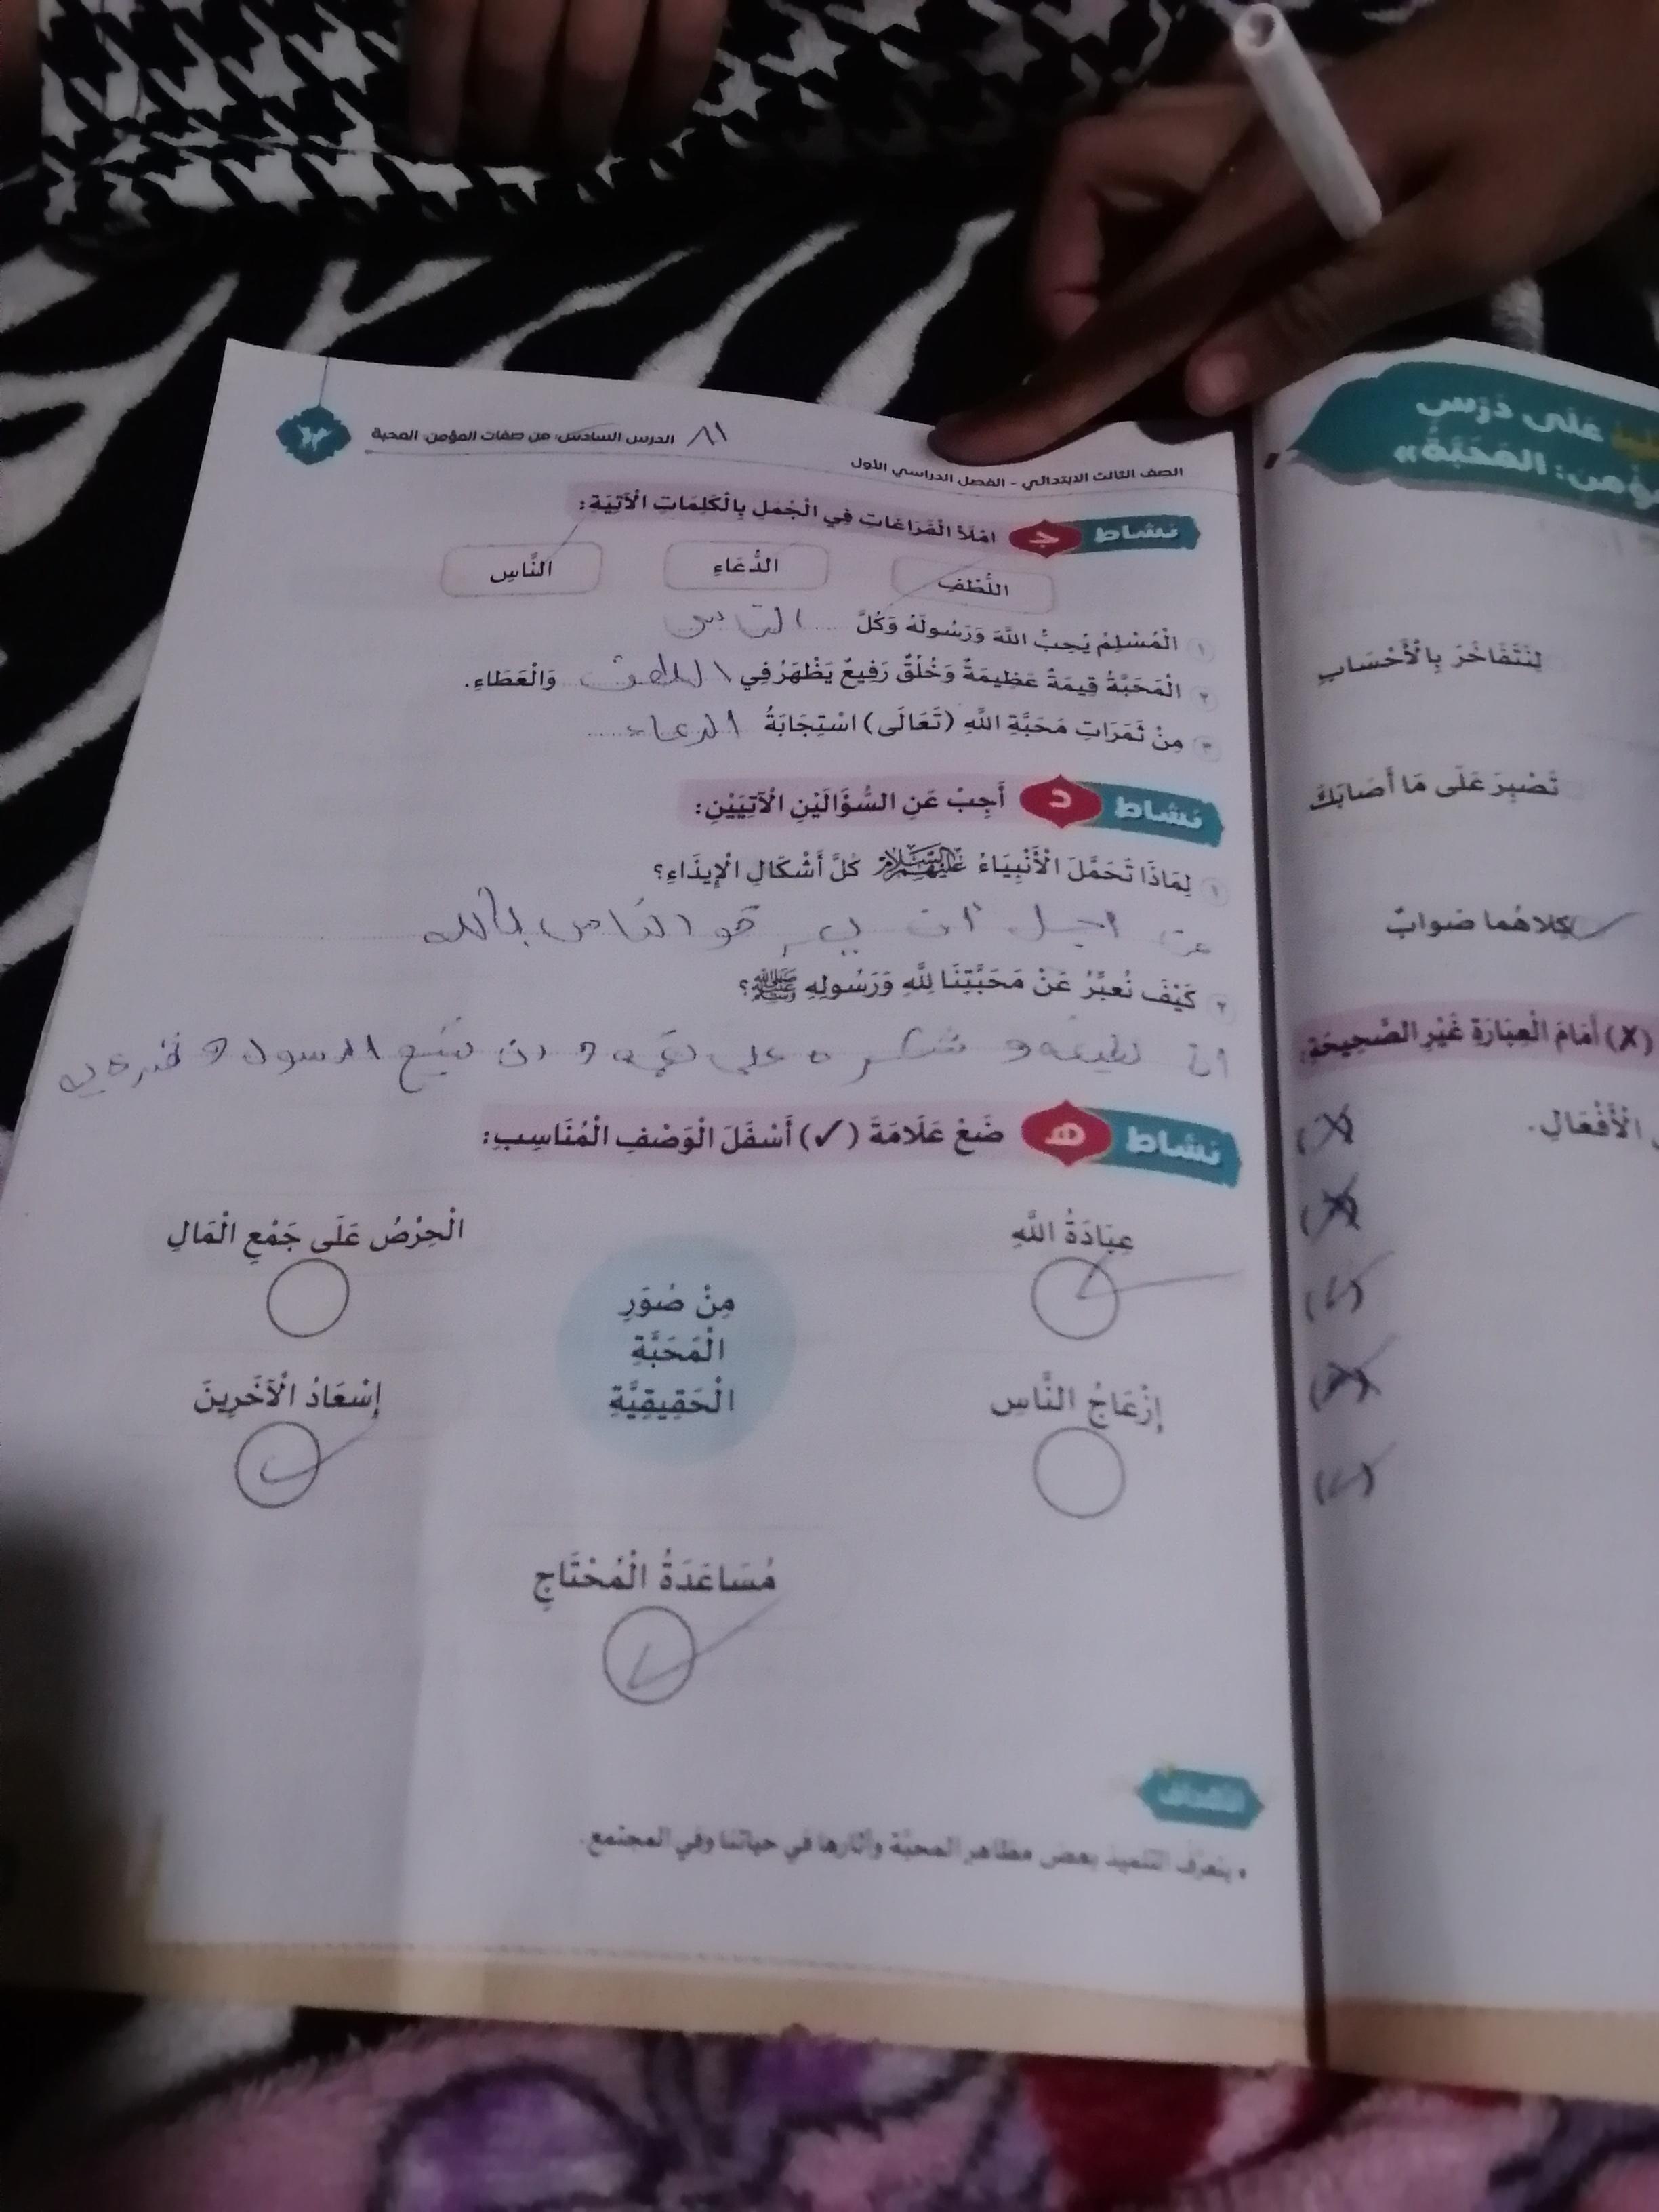 الدرس السادس: من صفات المؤمن: المحبة
الصف الثالث الابتدائي - الفصل الدراسي الأول
نشاط ج امْلَأْ الْفَرَاغَاتِ فِي الْجُمَلِ بِالْكَلِمَاتِ الْآتِيَةِ:
اللُّطْفِ الدُّعَاءِ النَّاسِ
١ الْمُسْلِمُ يُحِبُّ اللَّهَ وَرَسُولَهُ وَكُلَّ ..... الناس
٢ الْمَحَبَّةُ قِيمَةٌ عَظِيمَةٌ وَخُلُقٌ رَفِيعٌ يَظْهَرُ فِي اللطف وَالْعَطَاءِ.
٣ مِنْ ثَمَرَاتِ مَحَبَّةِ اللَّهِ (تَعَالَى) اسْتِجَابَةُ الدعاء .....
نشاط د أَجِبْ عَنِ السُّؤَالَيْنِ الْآتِيَيْنِ:
١ لِمَاذَا تَحَمَّلَ الْأَنْبِيَاءُ عَلَيْهِمُ السَّلَامُ كُلَّ أَشْكَالِ الْإِيذَاءِ؟
من اجل أن الناس بالله
٢ كَيْفَ نُعَبِّرُ عَنْ مَحَبَّتِنَا لِلَّهِ وَرَسُولِهِ ﷺ؟
ان نطيعه و نشكره على نعمه و ان نتبع الرسول و
نشاط هـ ضَعْ عَلَامَةَ (✓) أَسْفَلَ الْوَصْفِ الْمُنَاسِبِ:
عِبَادَةُ اللَّهِ
الْحِرْصُ عَلَى جَمْعِ الْمَالِ
مِنْ صُوَرِ
الْمَحَبَّةِ
الْحَقِيقِيَّةِ
إِزْعَاجُ النَّاسِ
إِسْعَادُ الْآخَرِينَ
مُسَاعَدَةُ الْمُحْتَاجِ
الأهداف
• يتعرف التلميذ بعض مظاهر المحبة وآثارها في حياتنا وفي المجتمع.
عَلَى دَرْسِ
الْمَحَبَّةُ»
لِنَتَفَاخَرَ بِالْأَحْسَابِ
تَصْبِرَ عَلَى مَا أَصَابَكَ
كِلَاهُمَا صَوَابٌ
(X) أَمَامَ الْعِبَارَةِ غَيْرِ الصَّحِيحَةِ:
الْأَفْعَالِ.